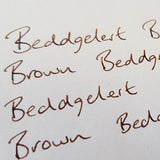 Beddgelert B
Brown Beddg
Beddgelert
Brown Bedd